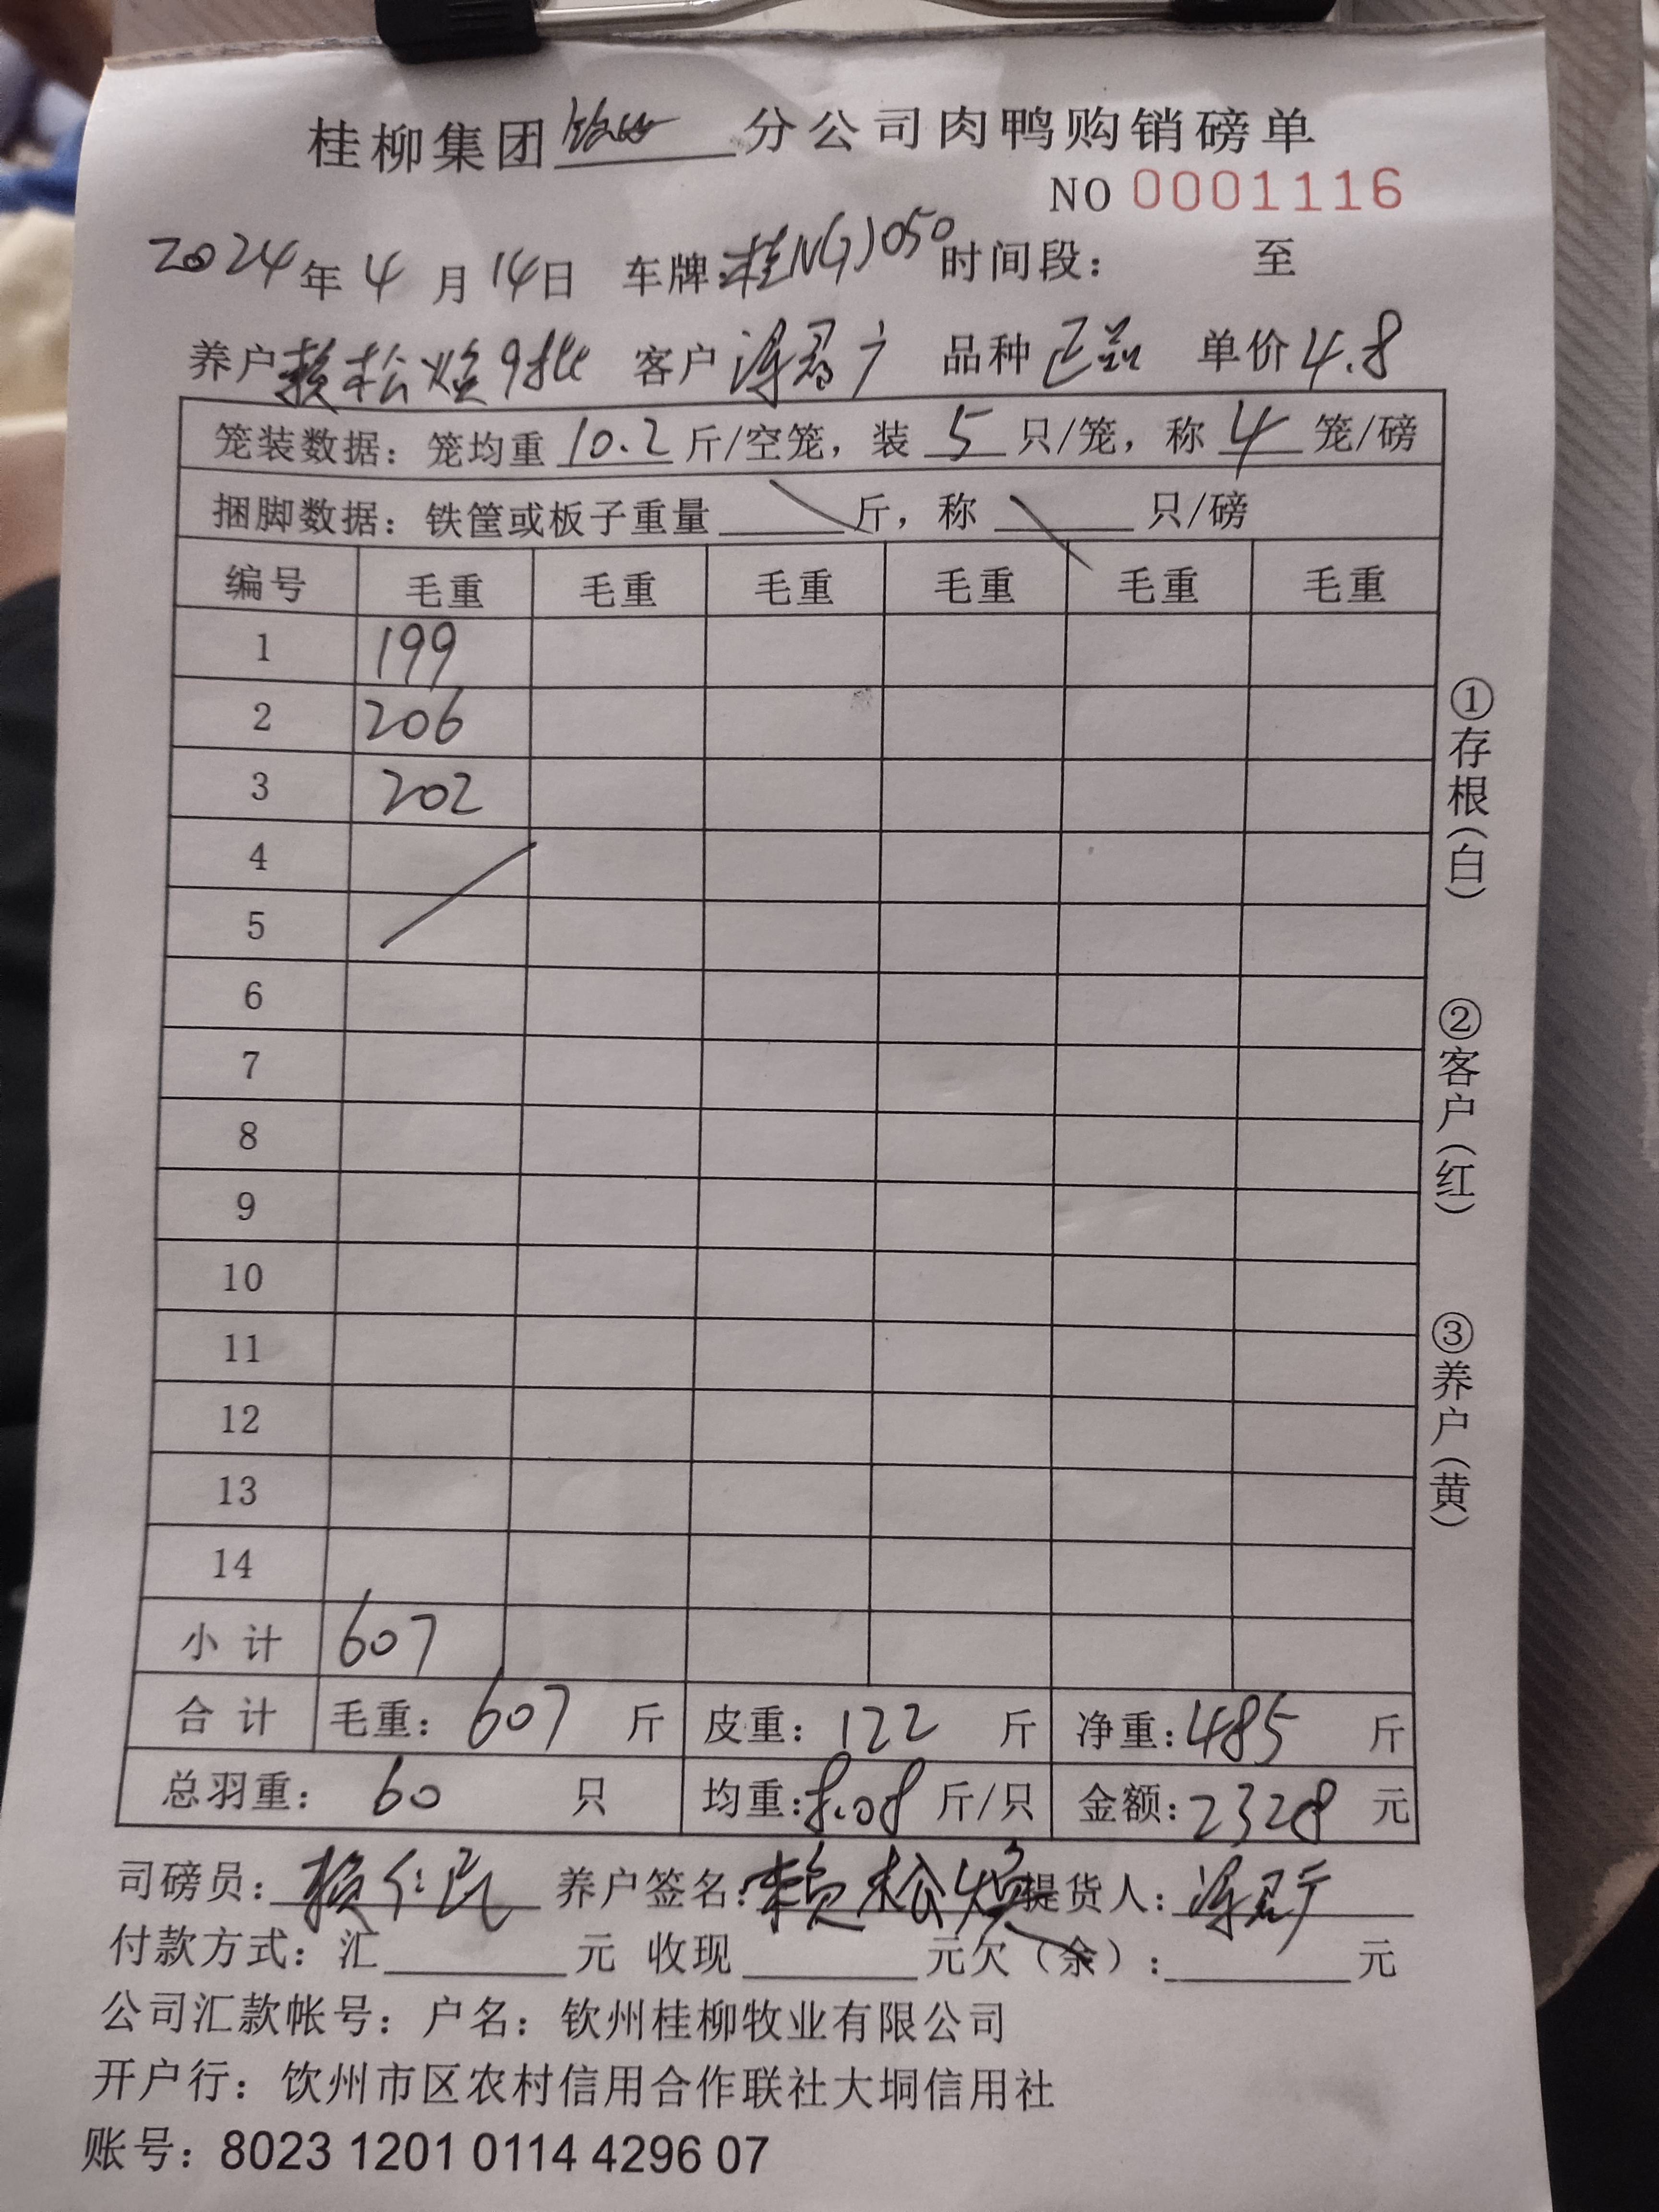 桂柳集团 钦州 分公司肉鸭购销磅单
NO 0001116
2024年4月14日 车牌:桂N 050 时间段: 至
养户 赖松焕9批 客户 品种 单价4.8
笼装数据：笼均重 10.2 斤/空笼，装 5 只/笼，称 4 笼/磅
捆脚数据：铁筐或板子重量 斤，称 只/磅
编号 毛重 毛重 毛重 毛重 毛重 毛重
1 199
2 206
3 202
4
5
6
7
8
9
10
11
12
13
14
小计 607
合计 毛重：607 斤 皮重：122 斤 净重：485 斤
总羽重：60 只 均重：8.08 斤/只 金额：2328 元
司磅员： 养户签名：赖松焕 提货人：
付款方式：汇 元 收现 元欠（余）： 元
公司汇款帐号：户名：钦州桂柳牧业有限公司
开户行：饮州市区农村信用合作联社大垌信用社
账号：8023 1201 0114 4296 07
①存根（白）
②客户（红）
③养户（黄）